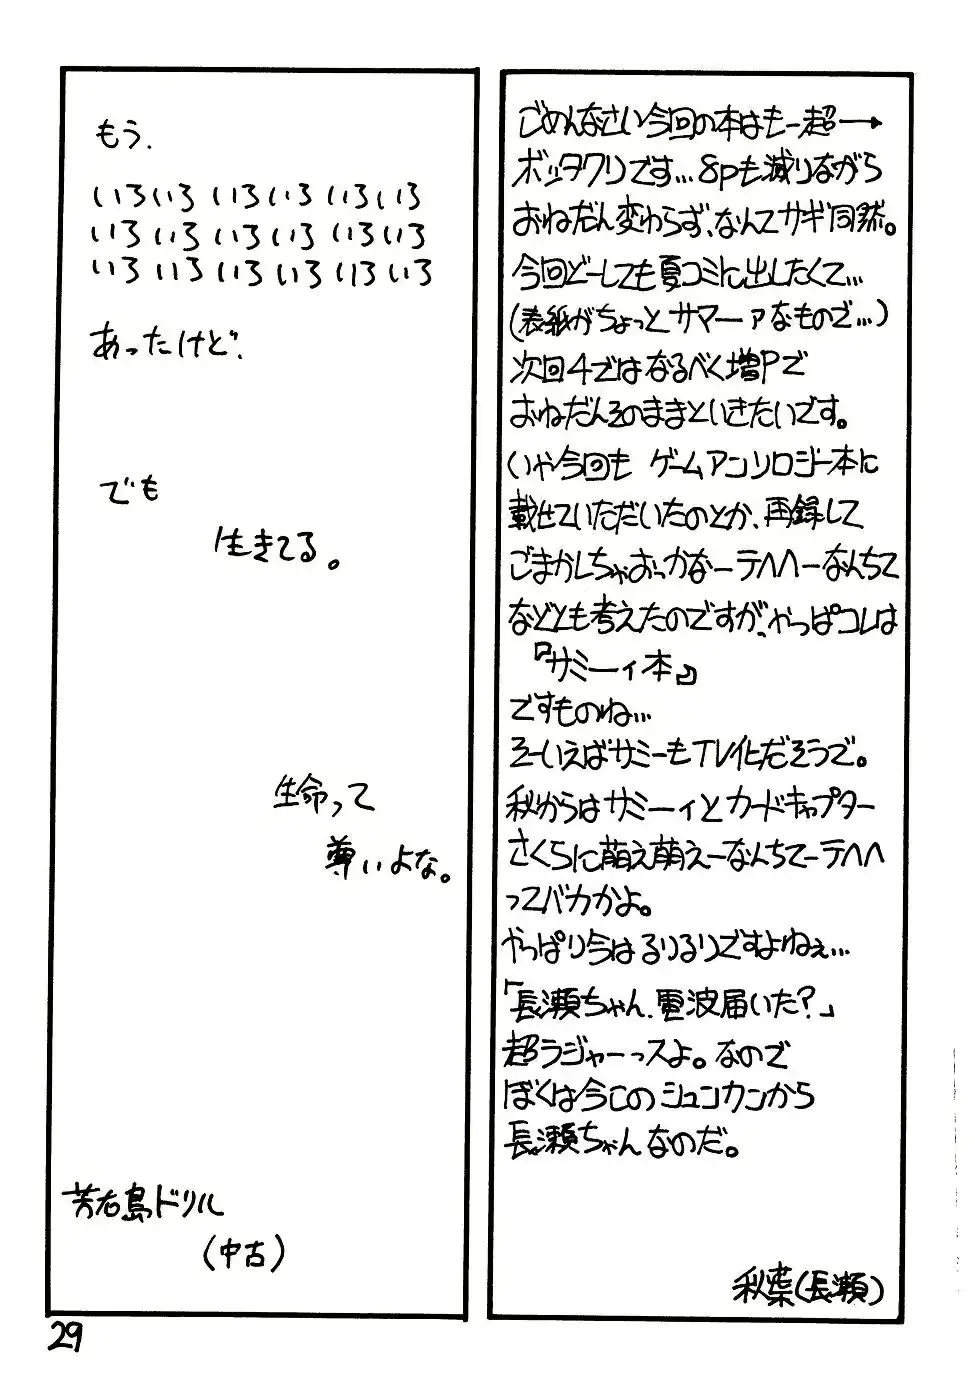 もう、
いろいろ いろいろ いろいろ
いろ いろ いろいろ いろいろ
いろ いろ いろ いろ いろ いろ
あったけど、
でも
生きてる。
生命って
尊いよな。
芳右島ドリル
(中古)
ごめんなさい今回の本はもー超ー→
ボッタクリです…8pも減りながら
おねだん変わらず、なんてサギ同然。
今回どーしても夏コミに出したくて…
(表紙がちょっとサマーァなもので…)
次回4ではなるべく増Pで
おねだんそのままといきたいです。
いや今回も ゲームアンソロジー本に
載せていただいたのとか、再録して
ごまかしちゃおっかなーテヘヘーなんちて
などとも考えたのですが、やっぱコレは
『サミーィ本』
ですものね…
そーいえばサミーもTV化だそうで。
秋からはサミーィとカードキャプター
さくらに萌え萌えーなんちてーテヘヘ
ってバカかよ。
やっぱり今はるりるりですよねぇ…
「長瀬ちゃん、電波届いた?」
超ラジャーっスよ。なので
ぼくは今このシュンカンから
長瀬ちゃんなのだ。
秋葉(長瀬)
29